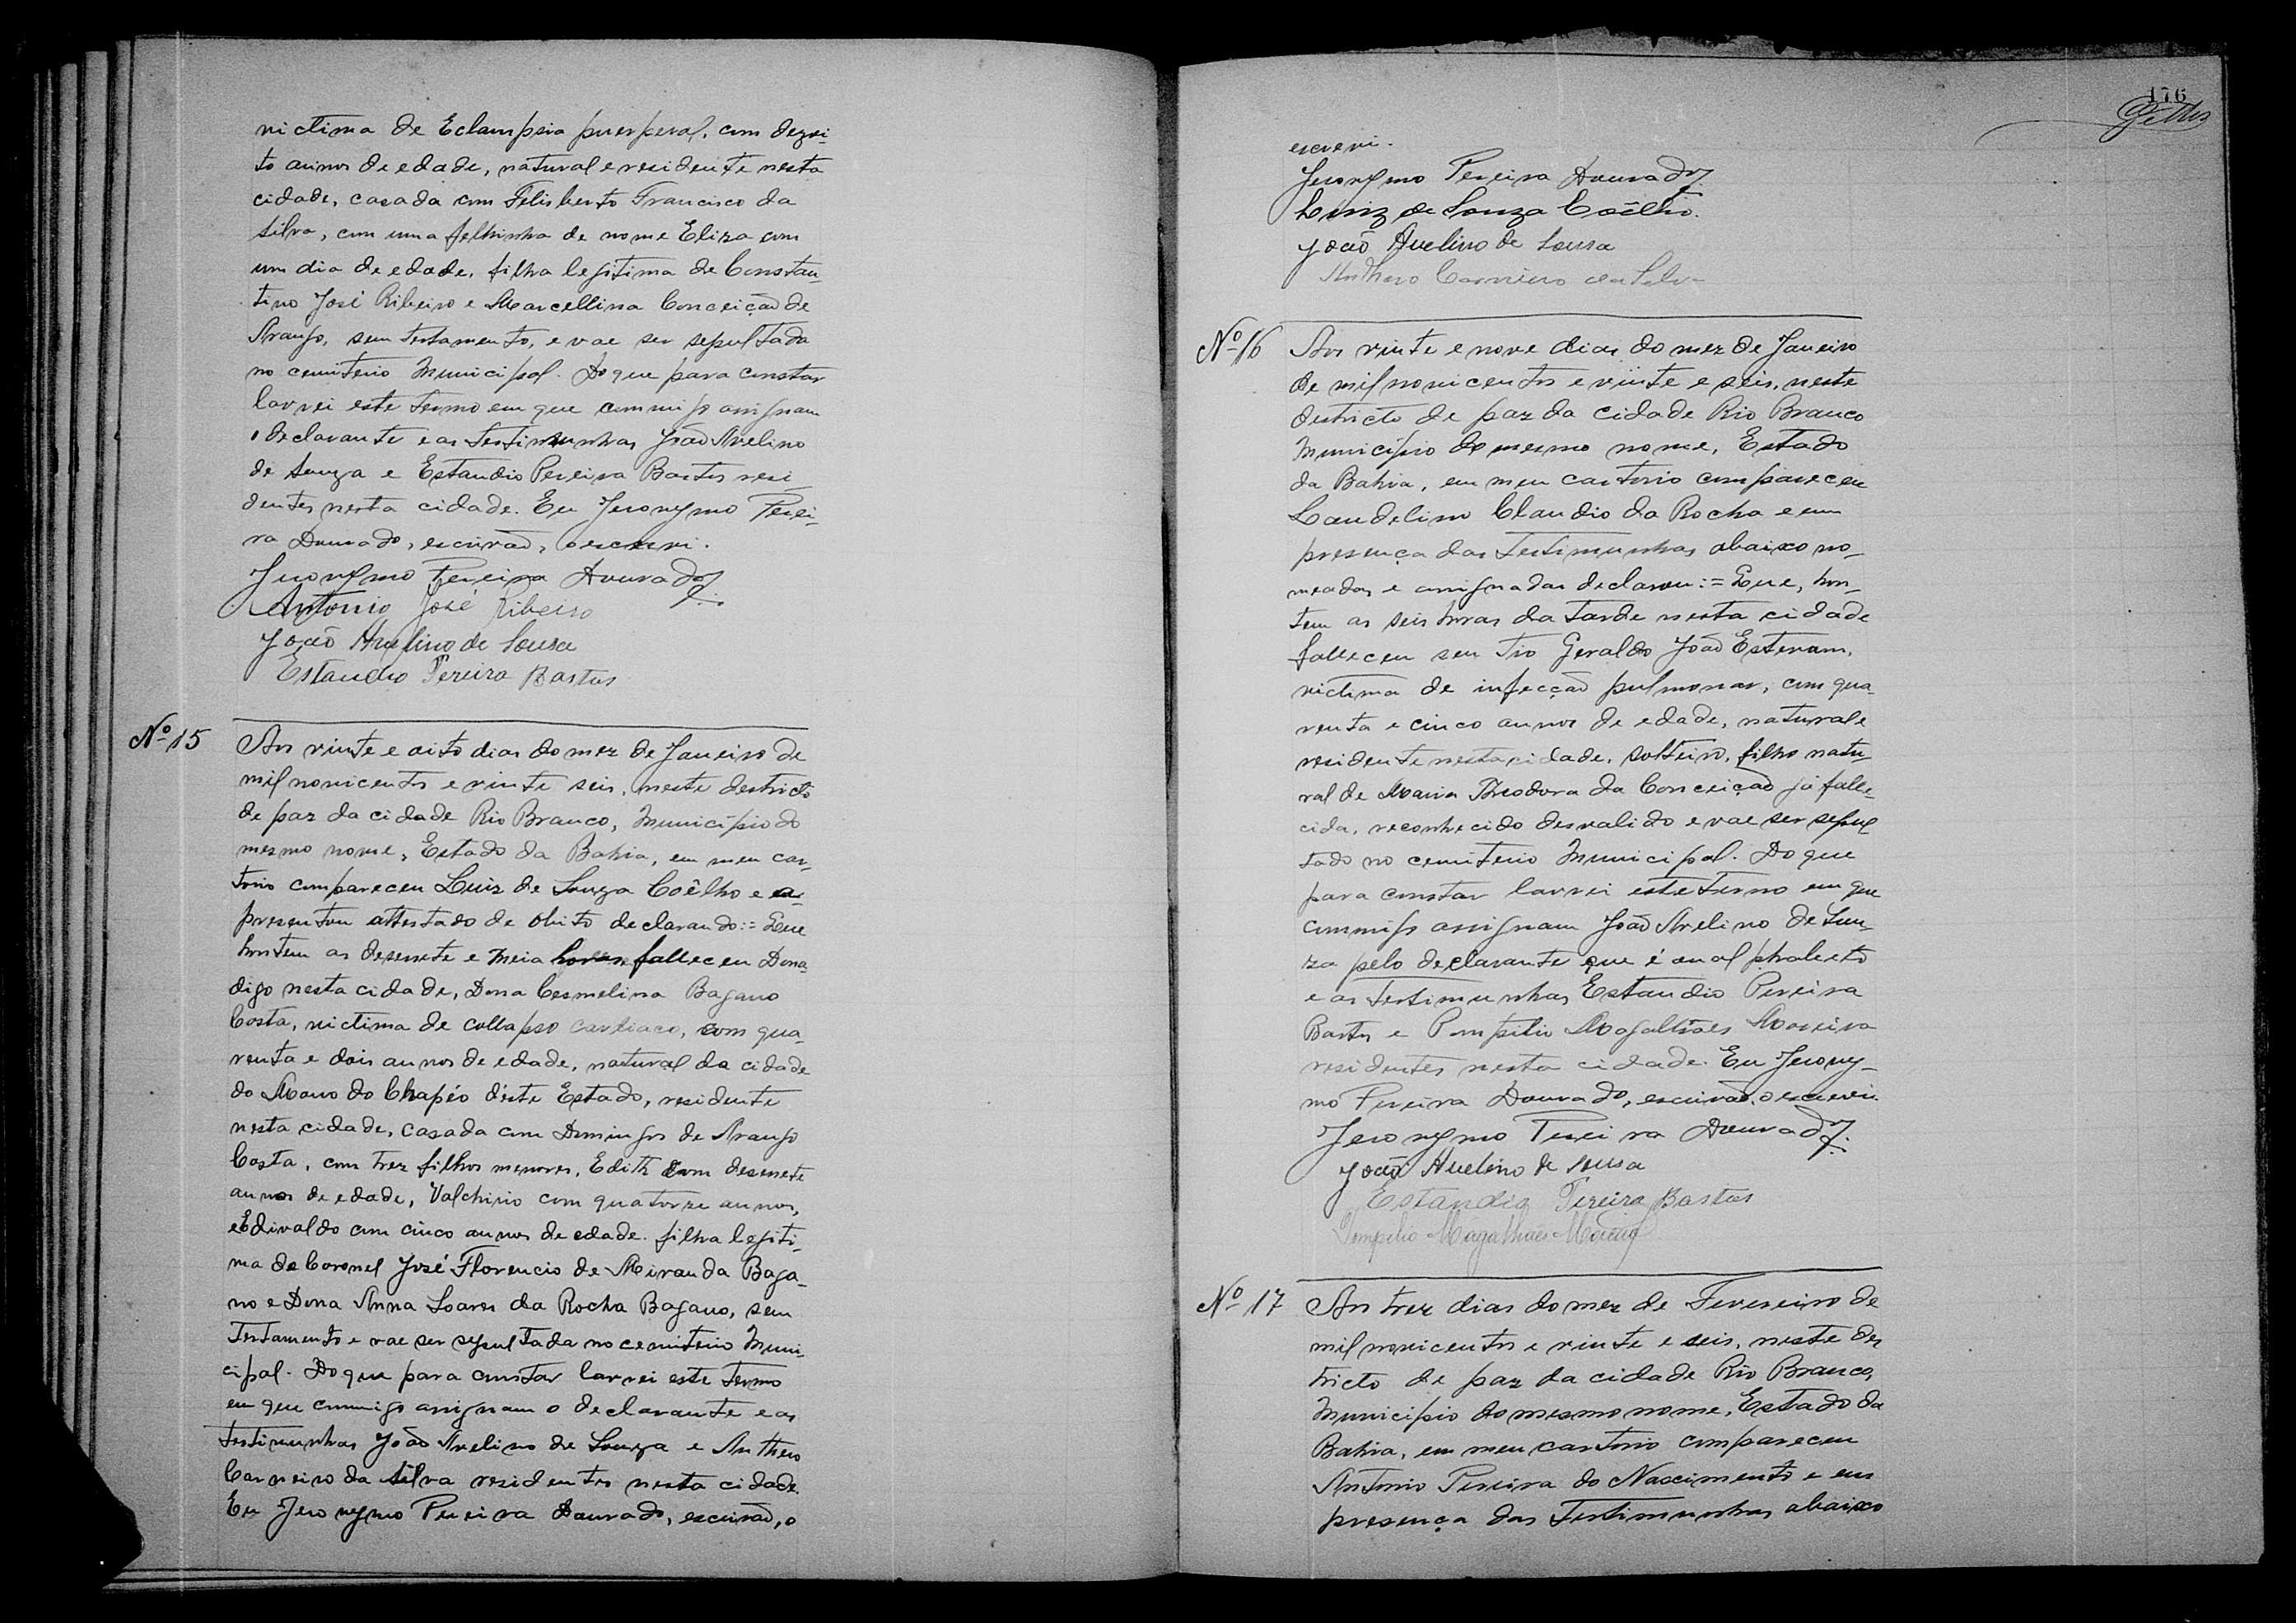 victima de Eclampsia puerperal, com dezoi-
to annos de edade, natural e residente nesta
cidade, casada com Felisberto Francisco da
Silva, com uma filhinha de nome Eliza com
um dia de edade, filha legitima de Constan-
tino José Ribeiro e Marcellina Conceição de
Araujo, sem testamento, e vae ser sepultada
no cemiterio Municipal. Do que para constar
lavrei este termo em que commigo assignam
o declarante e as testimunhas João Avelino
de Souza e Estandio Pereira Bastos resi
dentes nesta cidade. Eu Jeronymo Perei-
ra Dourado, escrivão, o escrevi.
Jeronymo Pereira Dourado
Antonio José Ribeiro
João Avelino de Sousa
Estandio Pereira Bastos
Nº 15
Aos vinte e oito dias do mez de Janeiro de
mil novicentos e vinte seis, neste destricto
de paz da cidade Rio Branco, Municipio do
mesmo nome, Estado da Bahia, em meu car-
torio compareceu Luiz de Souza Coêlho e a-
presentou attestado de obito declarando:= Que
hontem as desenete e meia horas falleceu Dona
digo nesta cidade, Dona Cesmelina Bagano
Costa, victima de collapso cardiaco, com qua-
renta e dois annos de edade, natural da cidade
do Morro do Chapéo dêste Estado, residente
nesta cidade, casada com Domingos de Araujo
Costa, com trez filhos menores, Edith com desenete
annos de edade, Valchirio com quatorze annos,
e Edivaldo com cinco annos de edade. filha legiti-
ma do Coronel José Florencio de Miranda Baga-
no e Dona Anna Soares da Rocha Bagano, sem
testamento e vae ser sepultada no cemiterio Muni-
cipal. Do que para constar lavrei este termo
em que commigo assignam o declarante e as
testimunhas João Avelino de Souza e Anthero
Carneiro da Silva residentes nesta cidade.
Eu Jeronymo Pereira Dourado, escrivão, o
176
escrevi.
Jeronymo Pereira Dourado
Luiz de Souza Coêlho.
João Avelino de Sousa
Anthero Carneiro da Silva
Nº 16
Aos vinte e nove dias do mez de Janeiro
de mil novicentos e vinte e seis, neste
destricto de paz da cidade Rio Branco
Municipio do mesmo nome, Estado
da Bahia, em meu cartorio compareceu
Laudelino Claudio da Rocha e em
presença das testimunhas abaixo no-
meadas e assignadas declarou:= Que, hon-
tem as seis horas da tarde nesta cidade
falleceu seu tio Geraldo João Estevam,
victima de infecção pulmonar, com qua-
renta e cinco annos de edade, natural e
residente nesta cidade, solteiro, filho natu-
ral de Maria Theodora da Conceição já falle-
cida, reconhecido desvalido e vae ser sepul
tado no cemiterio Municipal. Do que
para constar lavrei este termo em que
commigo assignam João Avelino de Sou-
za pelo declarante que é analphabeto
e as testimunhas Estandio Pereira
Bastos e Pompilio Magalhães Moreira
residentes nesta cidade. Eu Jerony-
mo Pereira Dourado, escrivão, o escrevi.
Jeronymo Pereira Dourado
João Avelino de Sousa
Estandio Pereira Bastos
Pompilio Magalhães Moreira
Nº 17
Aos trez dias do mez de Fevereiro de
mil novicentos e vinte e seis, neste des
tricto de paz da cidade Rio Branco,
Municipio do mesmo nome, Estado da
Bahia, em meu cartorio compareceu
Antonio Pereira do Nascimento e em
presença das testimunhas abaixo